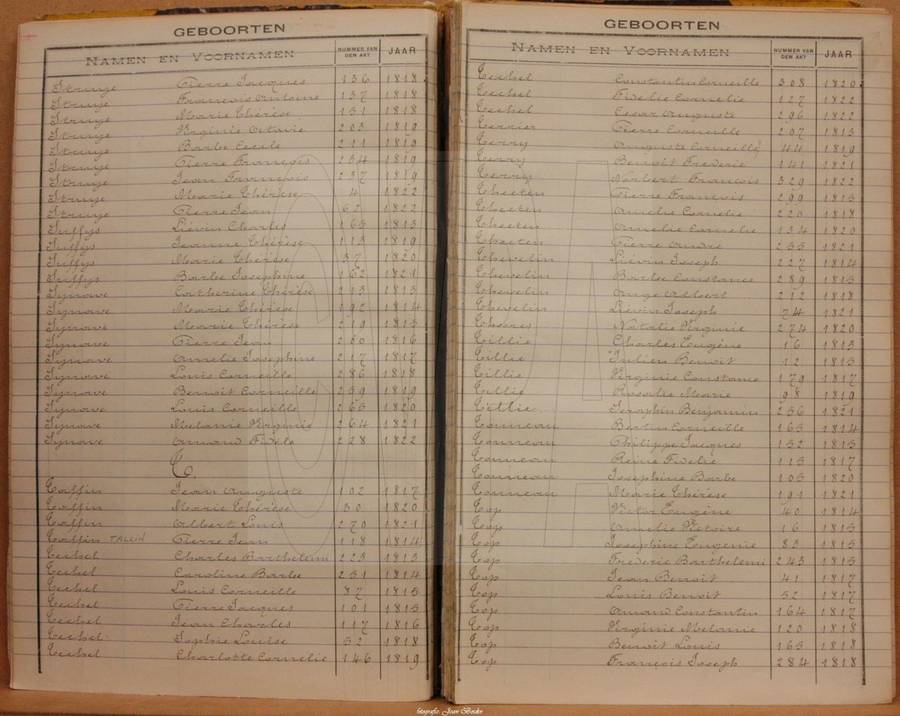 GEBOORTEN
NAMEN EN VOORNAMEN NUMMER VAN DEN AKT JAAR
Struye Pierre Jacques 136 1818
Struye François Antoine 137 1818
Struye Marie Thérèse 131 1818
Struye Virginie Octavie 203 1819
Struye Barbe Cecile 211 1819
Struye Pierre François 234 1819
Struye Jean François 237 1819
Struye Marie Thérèse 4 1822
Struye Pierre Jean 62 1822
Suffys Liévin Charles 163 1813
Suffys Jeanne Thérèse 113 1819
Suffys Marie Thérèse 37 1820
Suffys Barbe Josephine 162 1821
Synave Catherine Thérèse 213 1813
Synave Marie Thérèse 192 1814
Synave Marie Thérèse 219 1815
Synave Pierre Jean 280 1816
Synave Amelie Josephine 217 1817
Synave Louis Corneille 286 1818
Synave Benoit Corneille 239 1819
Synave Louis Corneille 265 1820
Synave Melanie Virginie 264 1821
Synave Amand Fidele 228 1822
T.
Taffin Jean Auguste 102 1817
Taffin Marie Thérèse 30 1820
Taffin Albert Louis 270 1821
Taffin TALLIN Pierre Jean 118 1814
Teibel Charles Barthelemi 223 1813
Teibel Caroline Barbe 231 1814
Teibel Louis Corneille 87 1815
Teibel Pierre Jacques 101 1815
Teibel Jean Charles 117 1816
Teibel Sophie Louise 52 1818
Teibel Charlotte Cornelie 146 1819
GEBOORTEN
NAMEN EN VOORNAMEN NUMMER VAN DEN AKT JAAR
Teibel Constantin Corneille 308 1820
Teibel Fidelie Cornelie 127 1822
Teibel Cesar Auguste 296 1822
Terrier Pierre Corneille 207 1813
Terry Auguste Corneille 44 1819
Terry Benoit Frederic 141 1821
Terry Norbert François 329 1822
Theeten Pierre François 299 1815
Theeten Amelie Cornelie 220 1818
Theeten Amelie Cornelie 134 1820
Theeten Pierre André 235 1821
Thevelin Liévin Joseph 227 1814
Thevelin Barbe Constance 289 1815
Thevelin Ange Albert 212 1818
Thevelin Liévin Joseph 74 1821
Natalie Virginie 274 1820
Tillie Charles Eugène 16 1813
Tillie Julien Benoit 12 1815
Tillie Virginie Constance 179 1817
Tillie Rosalie Marie 98 1819
Tillie Seraphin Benjamin 236 1821
Tonneau Bertin Corneille 165 1814
Tonneau Philippe Jacques 132 1815
Tonneau Reine Fidelie 115 1817
Tonneau Josephine Barbe 105 1820
Tonneau Marie Thérèse 191 1821
Top Victor Eugène 40 1814
Top Amelie Victoire 16 1815
Top Josephine Eugenie 83 1815
Top Frederic Barthelemi 243 1815
Top Jean Benoit 41 1817
Top Louis Benoit 52 1817
Top Amand Constantin 164 1817
Top Virginie Melanie 120 1818
Top Benoit Louis 163 1818
Top François Joseph 284 1818
fotografie: Joan Beider